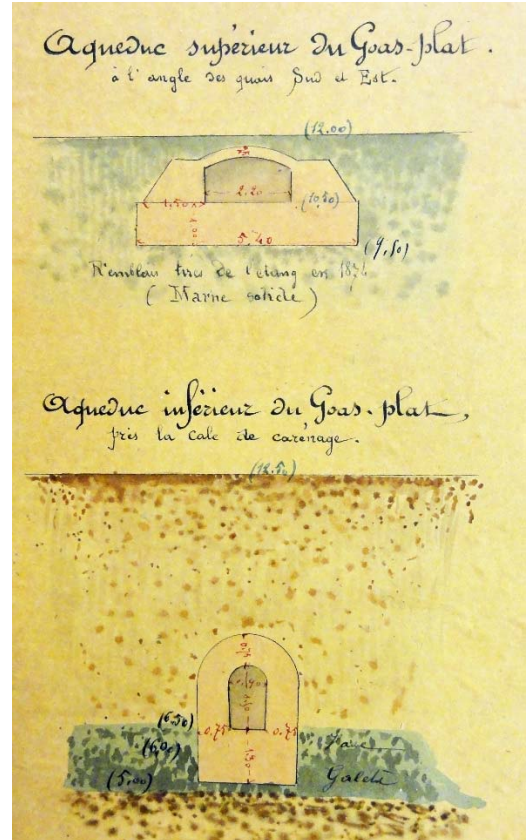 Aqueduc supérieur du Goas-plat.
à l'angle des quais Sud et Est.
(12.00)
2,20
1,50
(10,50)
1,00
5,40
(9,50)
Remblau tirés de l'étang en
(Marne solide)
Aqueduc inférieur du Goas-plat,
près la cale de carénage.
(12.50)
(6,50)
0,75
0,75
(6,00)
Galets
(5,00)